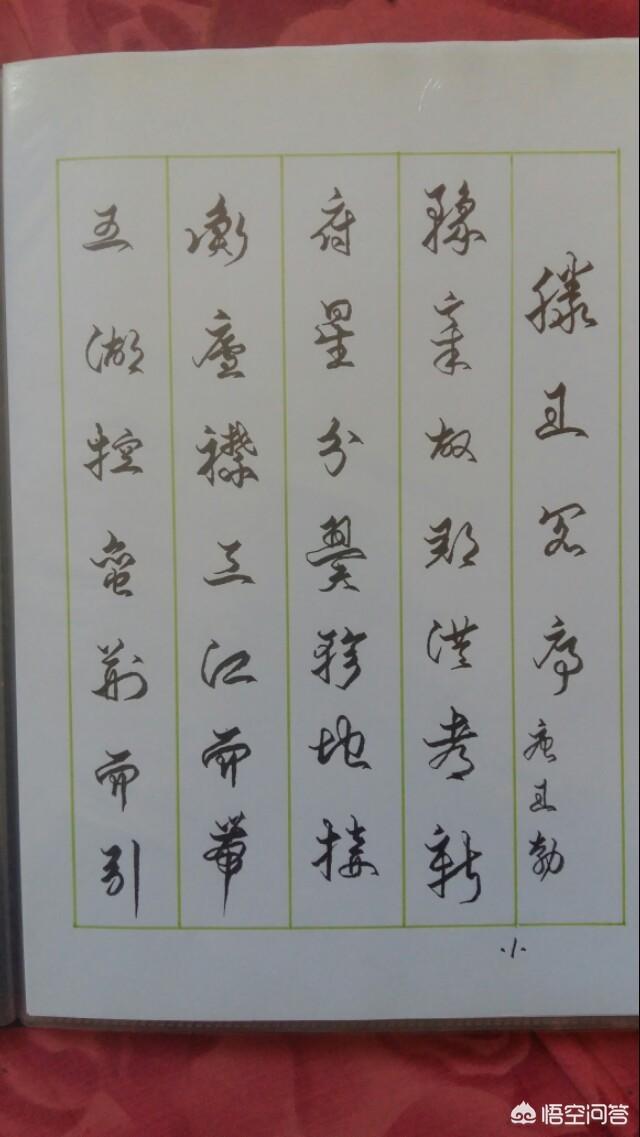 滕王阁序 唐王勃
豫章故郡洪都新
府星分翼轸地接
衡廬襟三江而帶
五湖控蛮荆而引
·1·
悟空问答